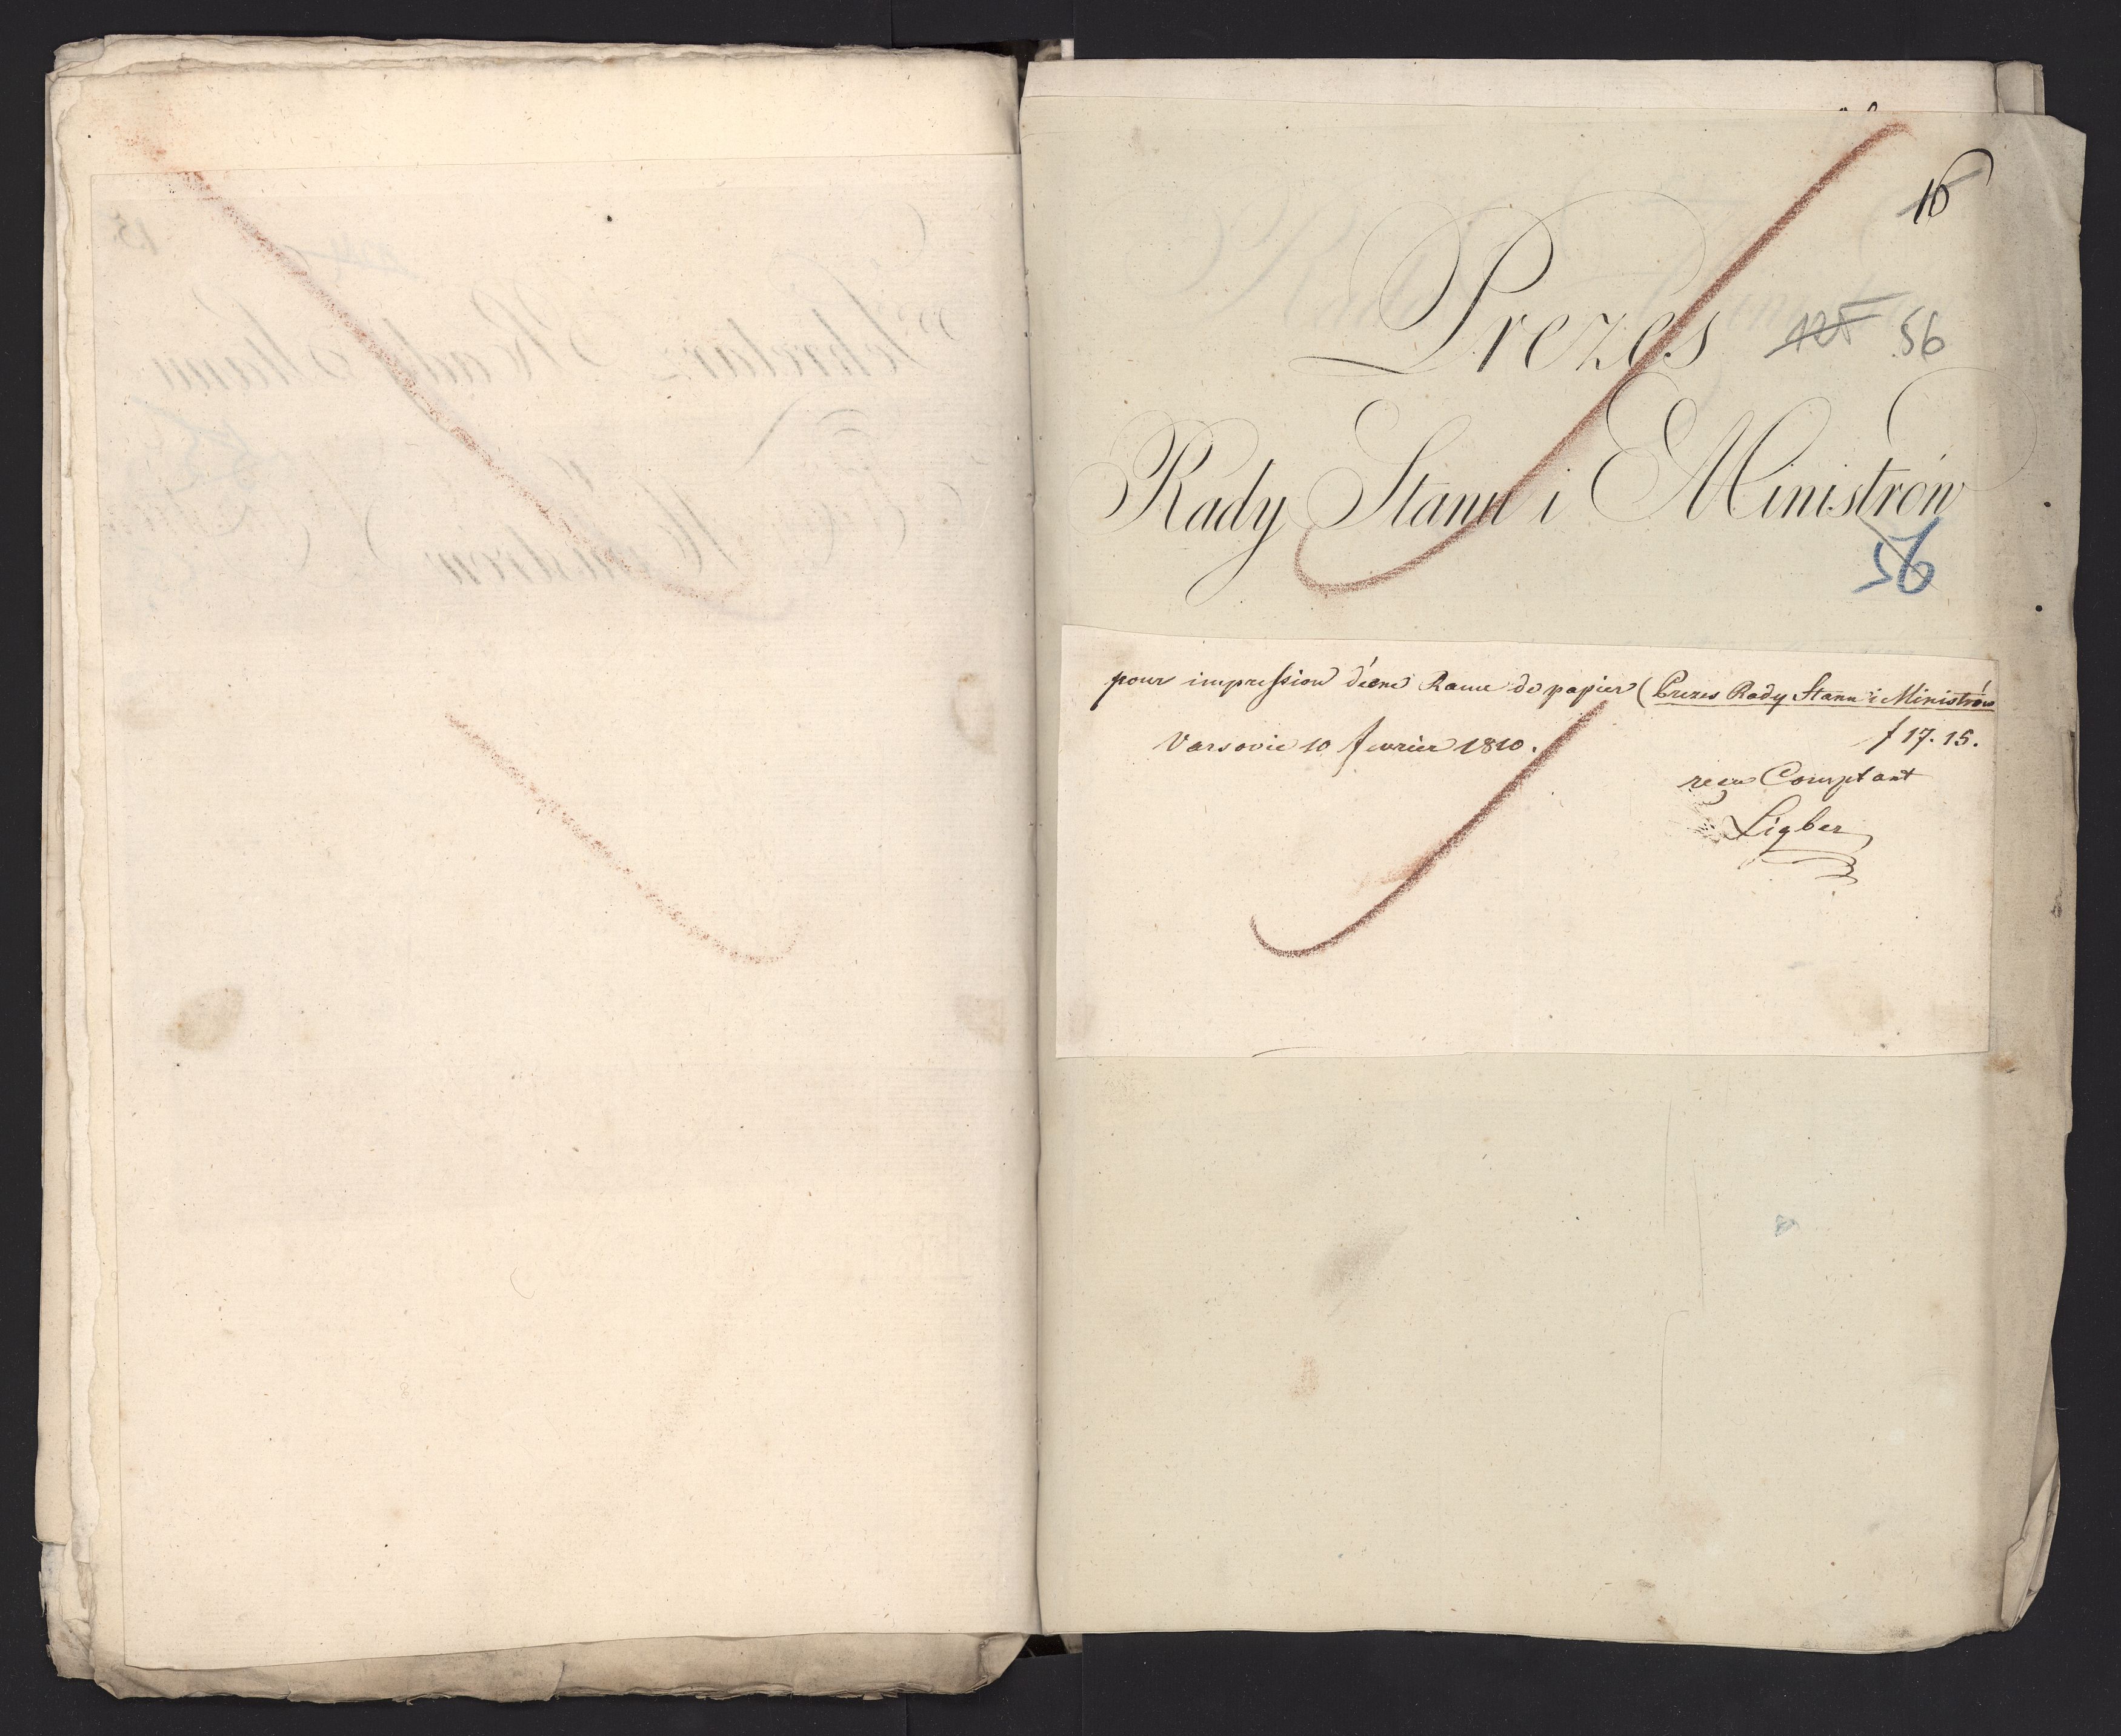 16
Prezes 125 56
Rady Stanu i Ministrów
56
pour impression d'éene Rame de papier (Prezes Rady Stanu i Ministrów
Varsovie 10 fevrier 1810. f 17. 15.
reçu Comptant
Ligber